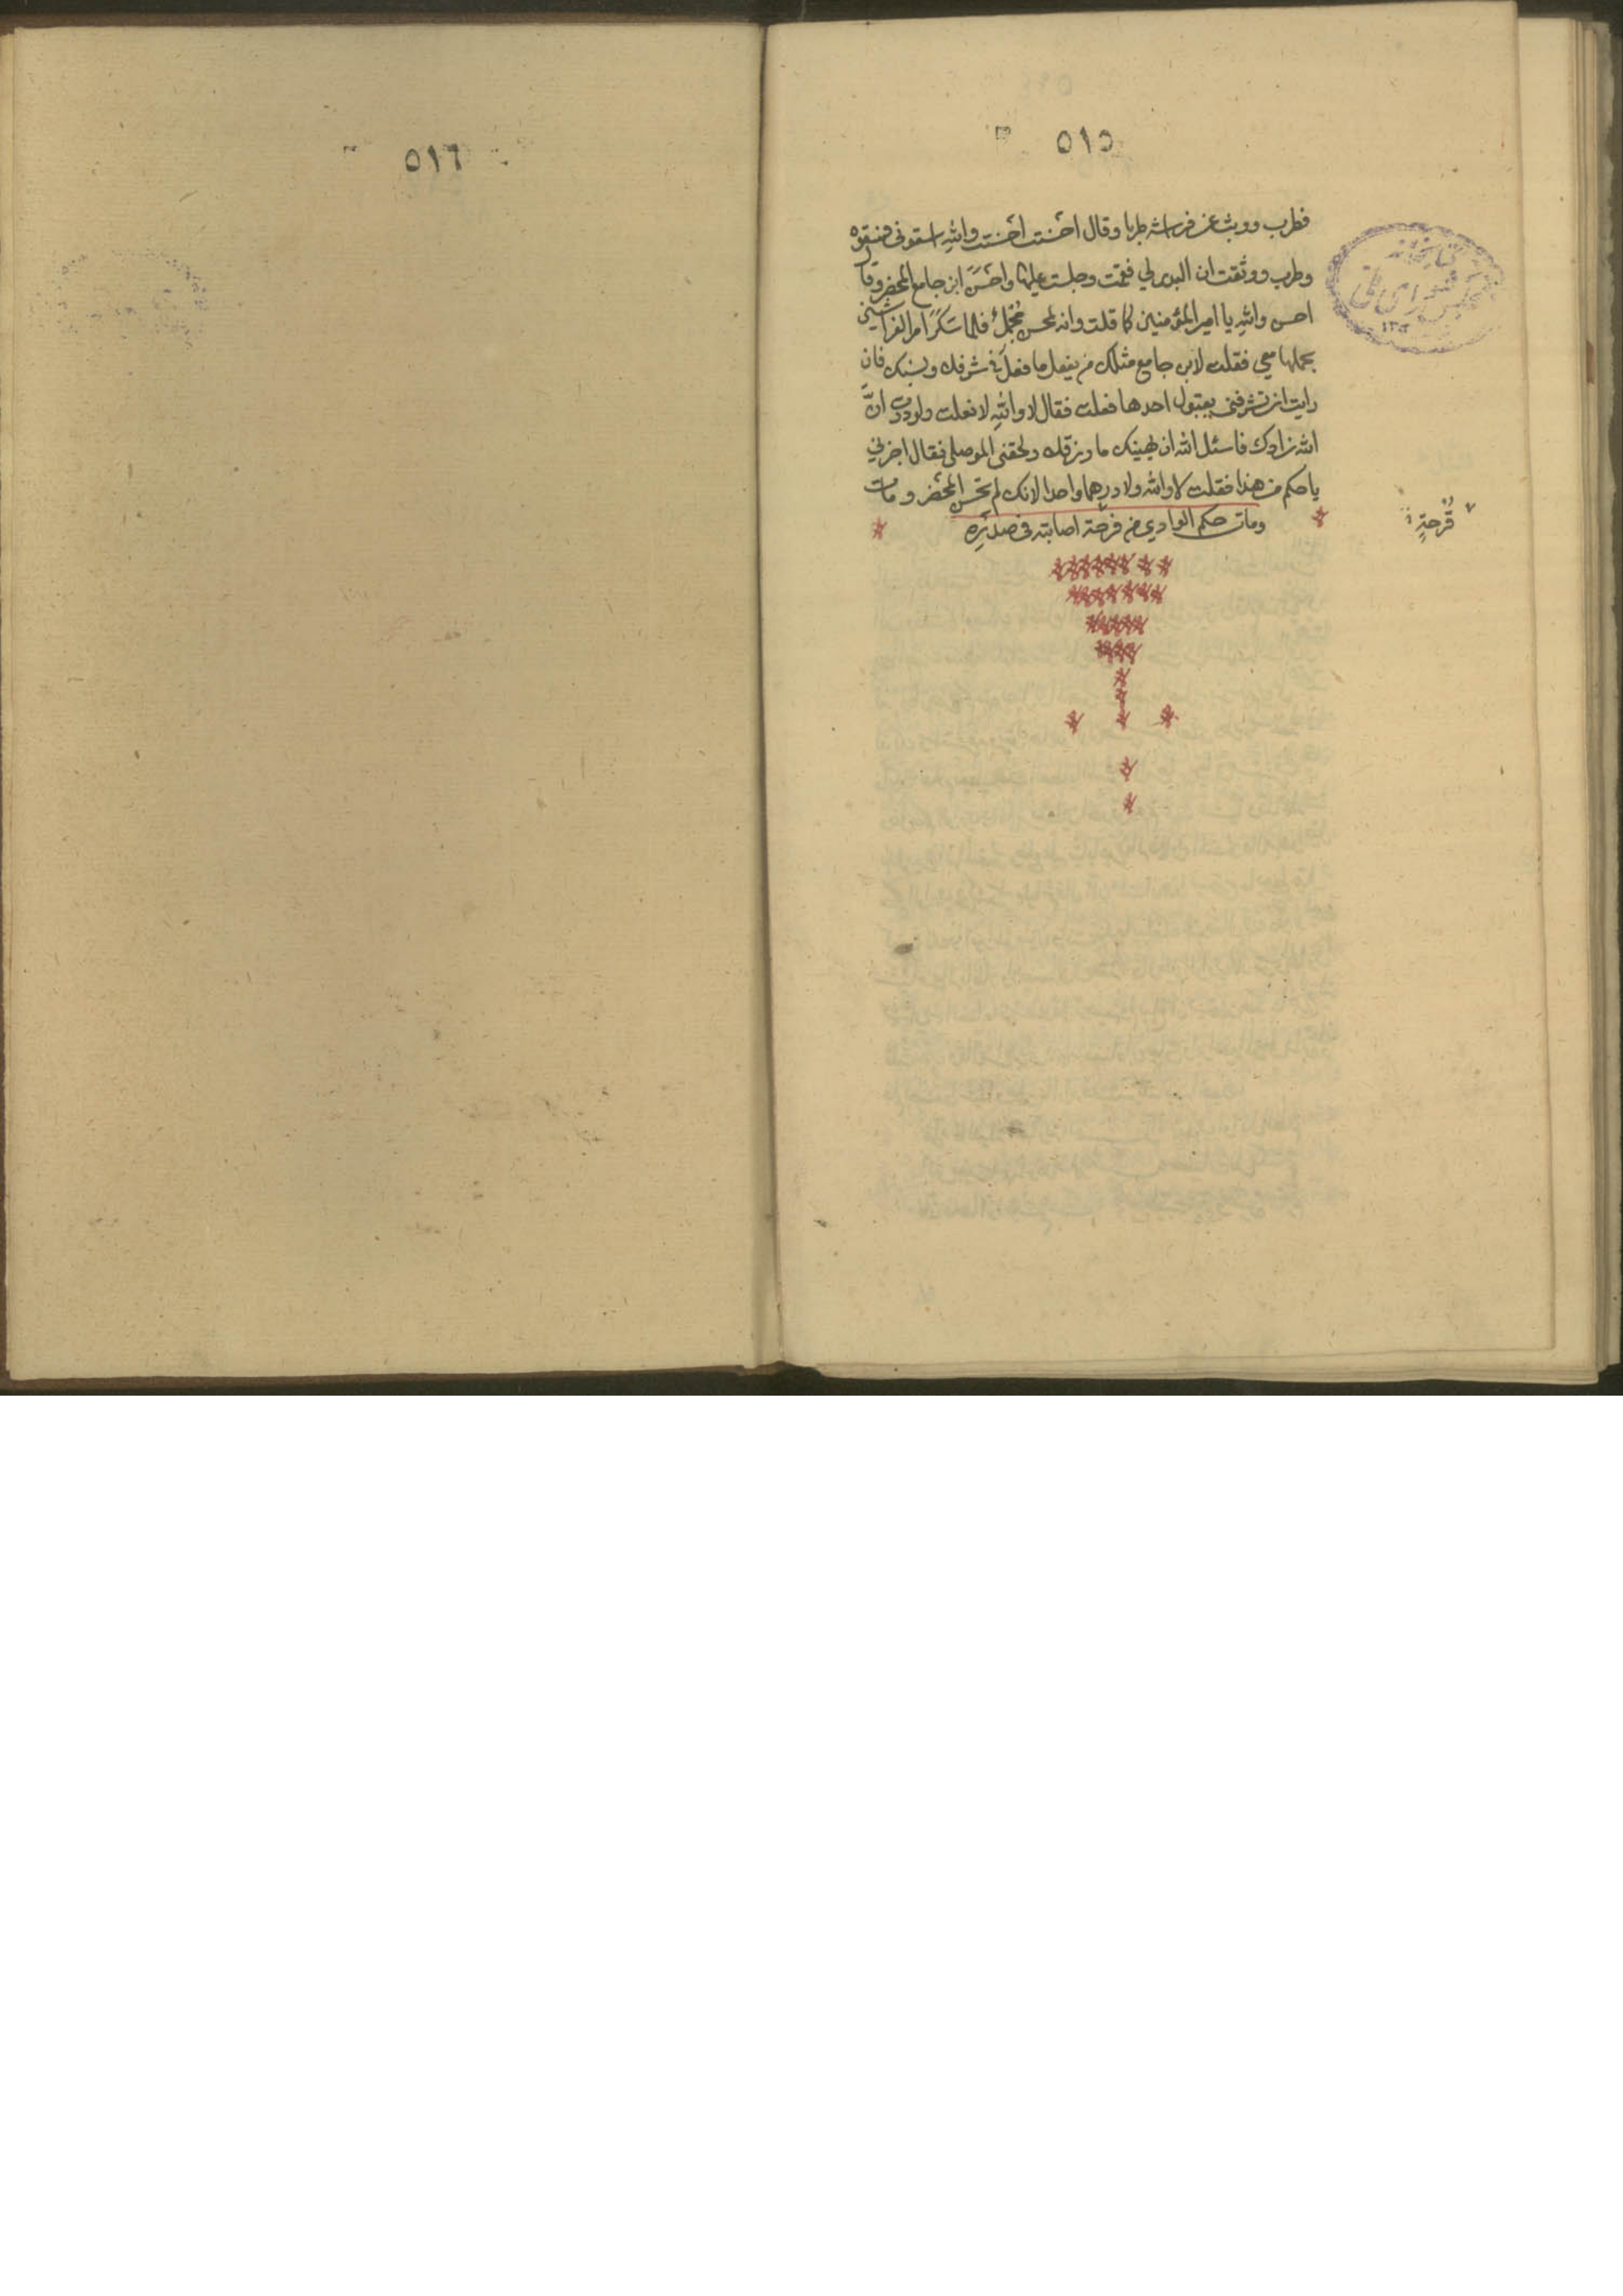 ٥١٥
فطرب ووثب عن فراشه طربا وقال احسنت احسنت والله اسقوني فسقوه
وطرب ووثقت ان البدر لي فقمت وجلست عليها واحسن ابن جامع المحضر وقال
احسن والله يا امير المؤمنين كما قلت وانه لمحسن مجمل فلما سكر امر الفراشين
بحملها معي فقلت لابن جامع مثلك من يفعل ما فعل في شرفك ونسبك فان
رايت ان تشرفني بقبول احدها فعلت فقال لا والله لا فعلت ولوددت انّ
الله زادك فاسئل الله ان يهنيك ما رزقك ولحقني الموصلي فقال اجزني
يا حكم من هذا فقلت لا والله ولا درهما واحدا لانك لم تحسن المحضر ومات
ومات حكم الوادي من قرحة اصابته في صدره
قُرحةٍ
كتابخانه
مجلس شورای ملی
٥١٦